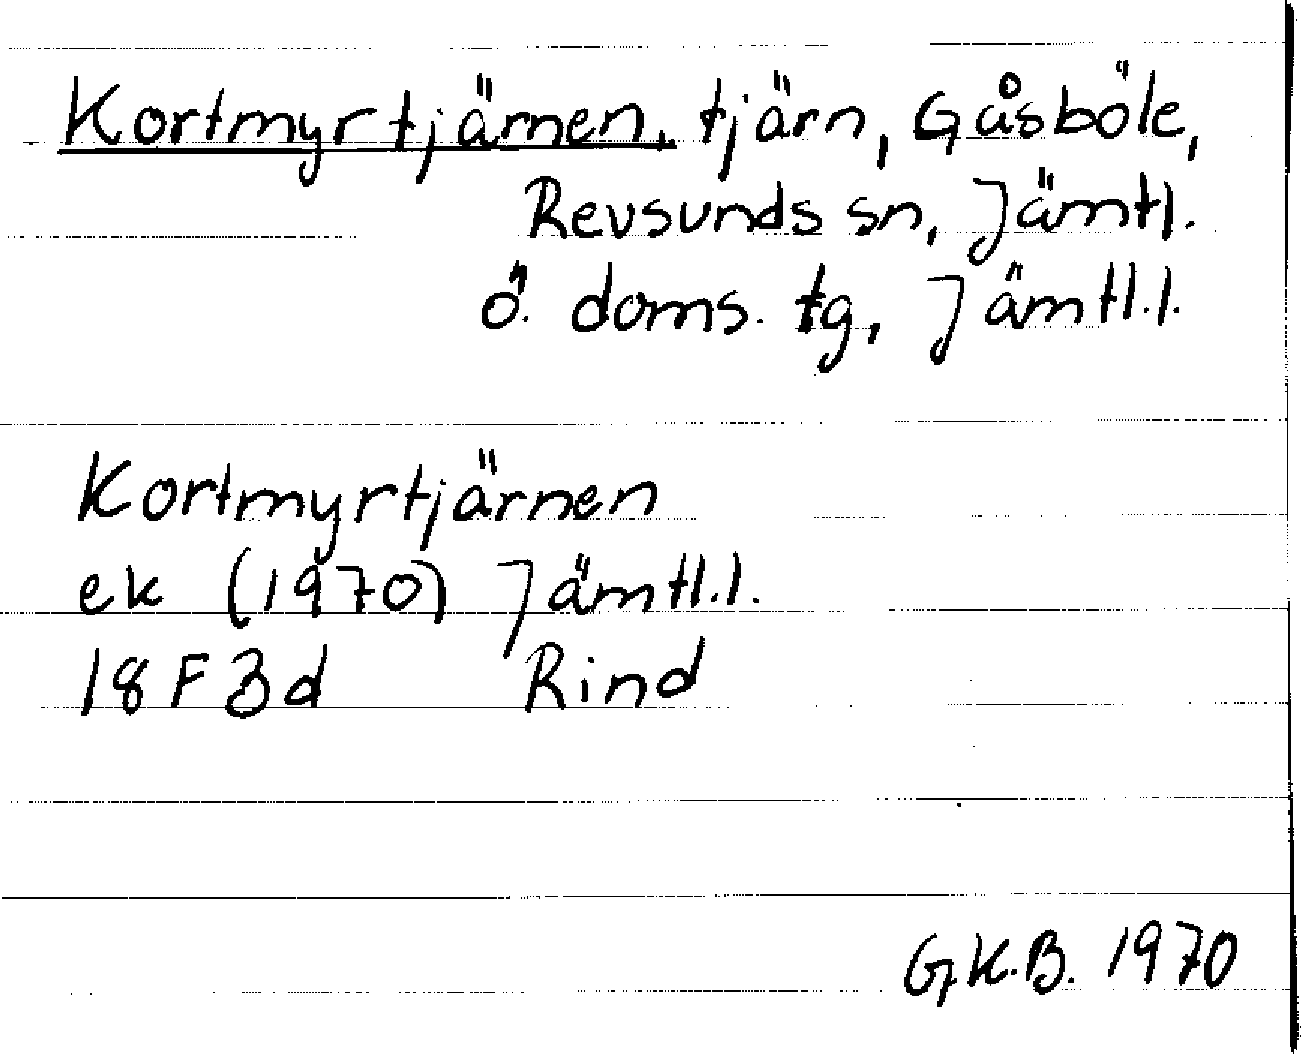 Kortmyrtjärnen, tjärn, Gåsböle,
Revsunds sn, Jämtl.
ö. doms. tg, Jämtl.l.
Kortmyrtjärnen
ek (1970) Jämtl.l.
18F3d Rind
G.K.B. 1970